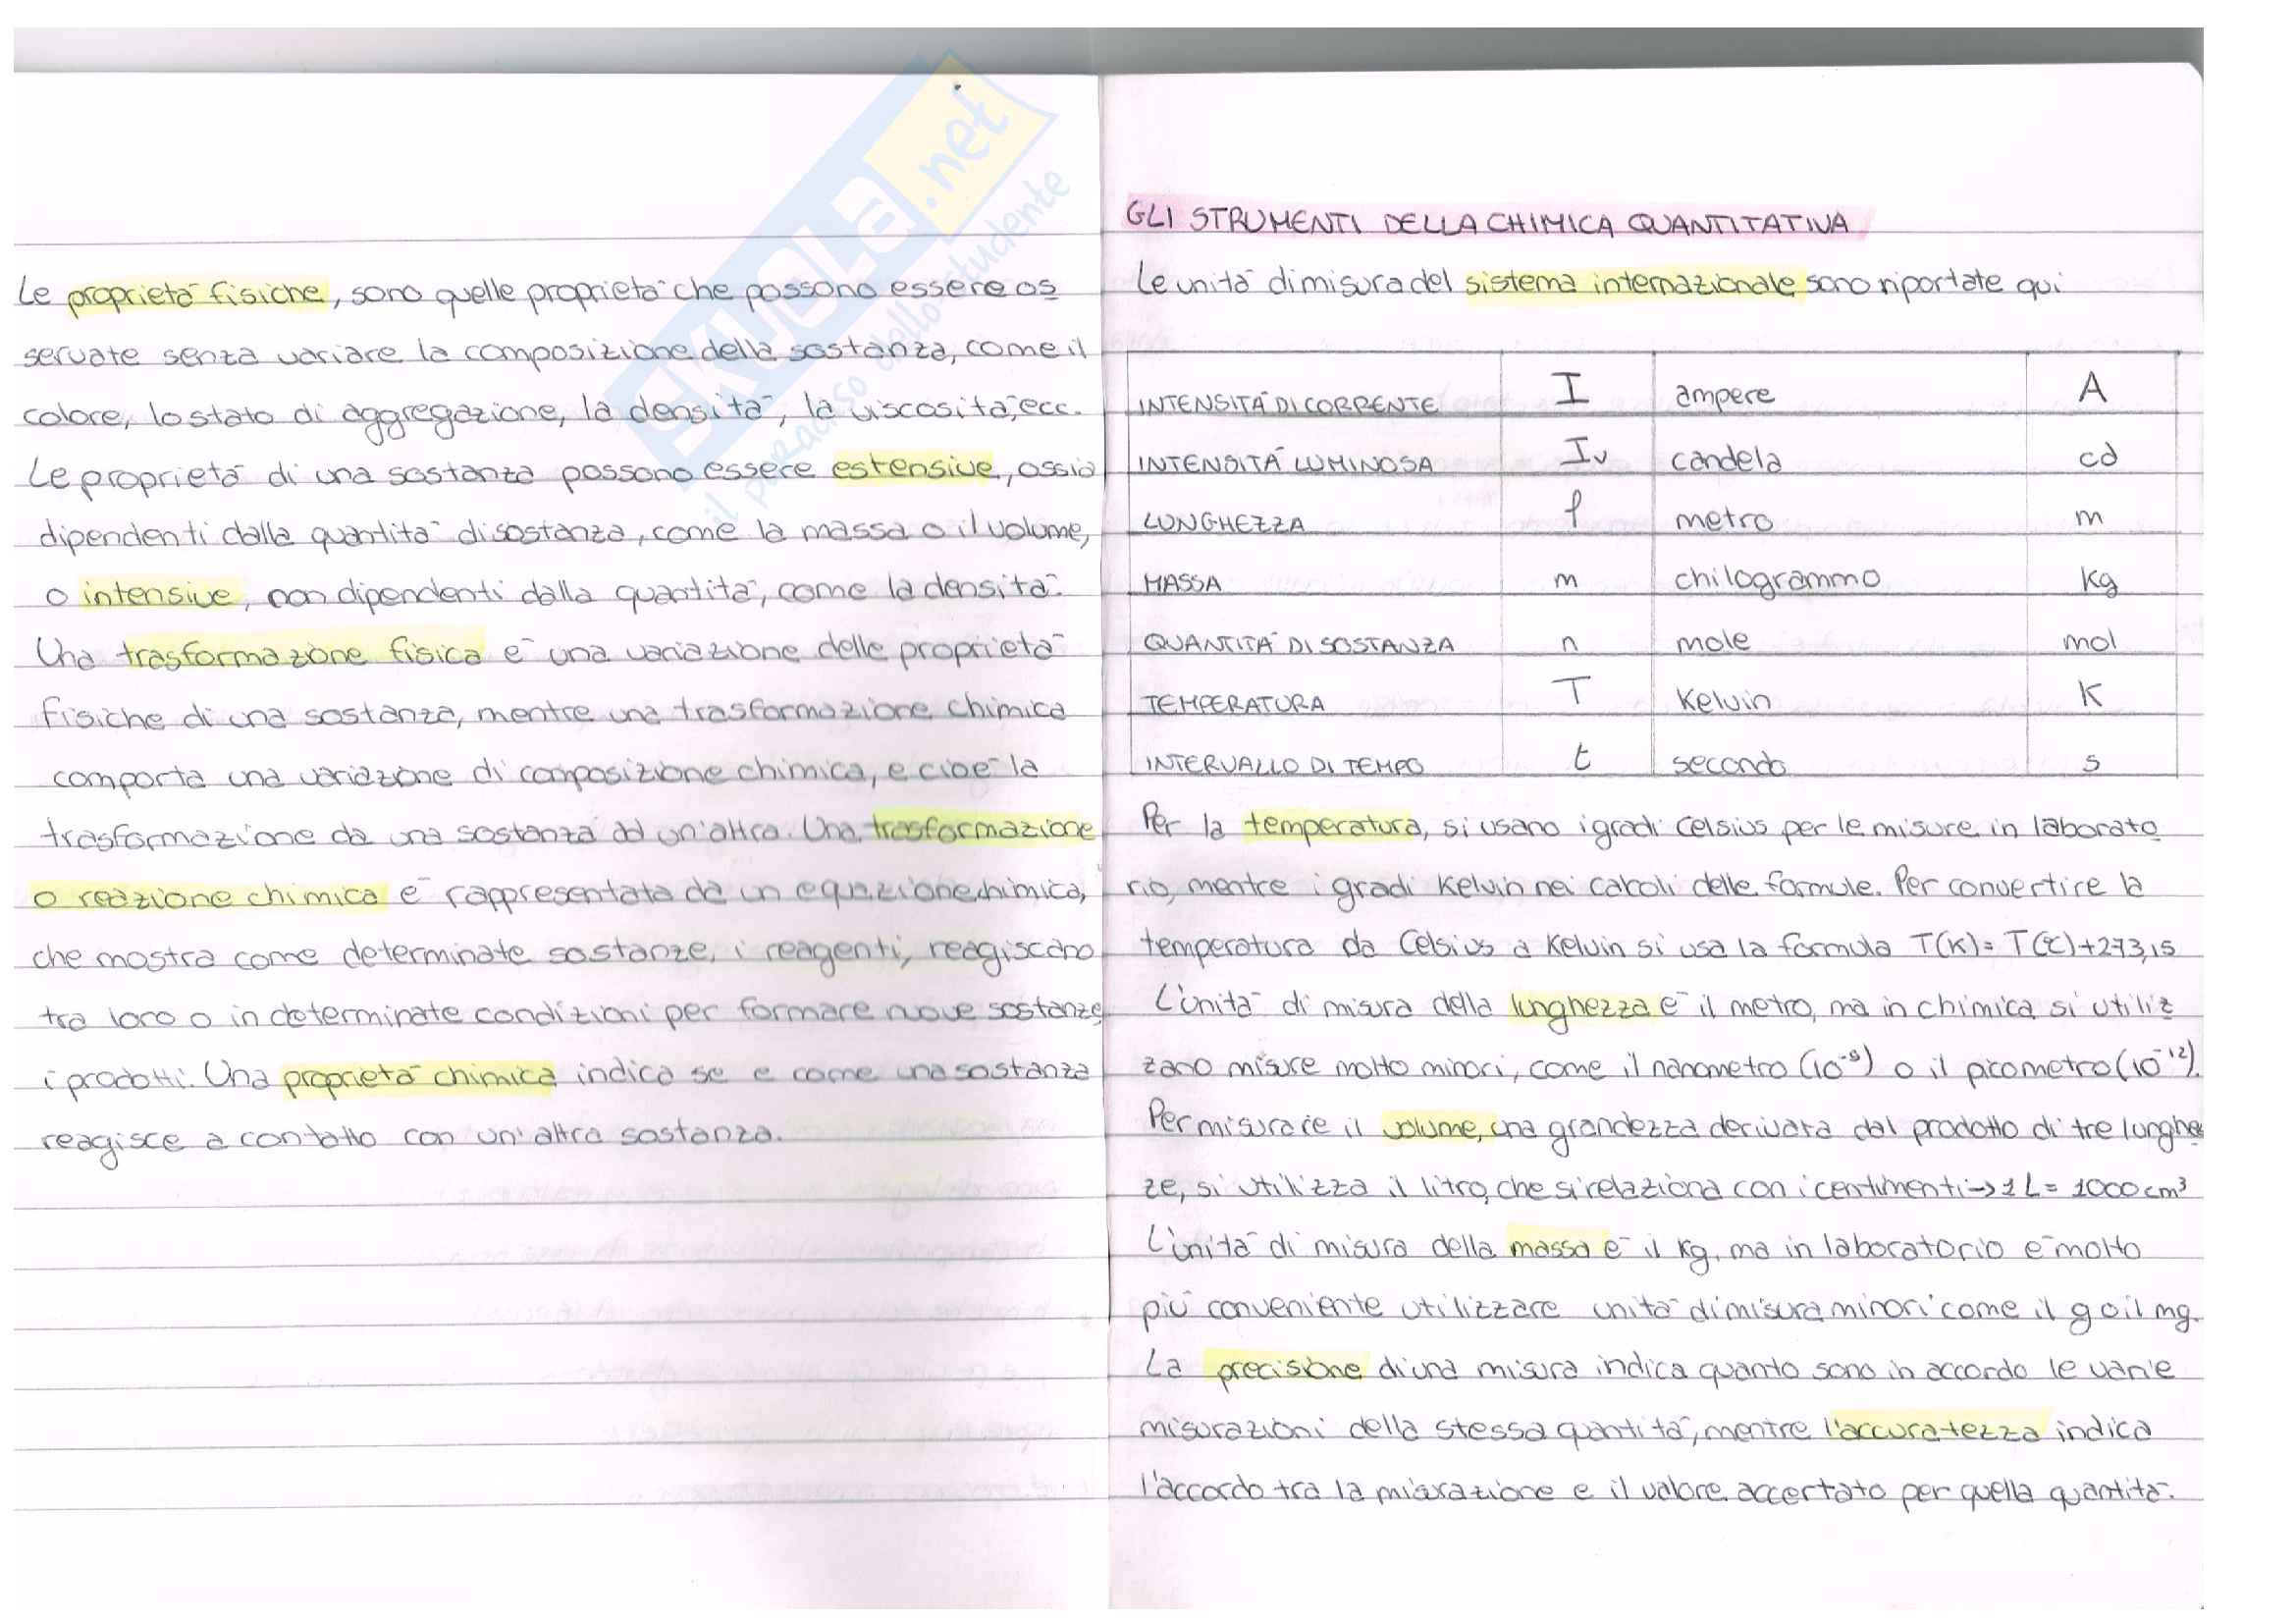 SKUOLA.net
il paradiso dello studente
Le proprietà fisiche, sono quelle proprietà che possono essere os
servate senza variare la composizione della sostanza, come il
colore, lo stato di aggregazione, la densità, la viscosità, ecc.
Le proprietà di una sostanza possono essere estensive, ossia
dipendenti dalla quantità di sostanza, come la massa o il volume,
o intensive, non dipendenti dalla quantità, come la densità.
Una trasformazione fisica è una variazione delle proprietà
fisiche di una sostanza, mentre una trasformazione chimica
comporta una variazione di composizione chimica, e cioè la
trasformazione da una sostanza ad un'altra. Una trasformazione
o reazione chimica è rappresentata da un equazione chimica,
che mostra come determinate sostanze, i reagenti, reagiscano
tra loro o in determinate condizioni per formare nuove sostanze
i prodotti. Una proprietà chimica indica se e come una sostanza
reagisce a contatto con un'altra sostanza.
GLI STRUMENTI DELLA CHIMICA QUANTITATIVA
Le unità di misura del sistema internazionale sono riportate qui
INTENSITÀ DI CORRENTE I ampere A
INTENSITÀ LUMINOSA Iv candela cd
LUNGHEZZA l metro m
MASSA m chilogrammo Kg
QUANTITÀ DI SOSTANZA n mole mol
TEMPERATURA T Kelvin K
INTERVALLO DI TEMPO t secondo s
Per la temperatura, si usano i gradi Celsius per le misure in laborato
rio, mentre i gradi Kelvin nei calcoli delle formule. Per convertire la
temperatura da Celsius a Kelvin si usa la formula T(K)= T(°C)+273,15
L'unità di misura della lunghezza è il metro, ma in chimica si utiliz
zano misure molto minori, come il nanometro (10⁻⁹) o il picometro (10⁻¹²).
Per misurare il volume, una grandezza derivata dal prodotto di tre lunghez
ze, si utilizza il litro, che si relaziona con i centimenti → 1 L = 1000 cm³
L'unità di misura della massa è il Kg, ma in laboratorio è molto
più conveniente utilizzare unità di misura minori come il g o il mg.
La precisione di una misura indica quanto sono in accordo le varie
misurazioni della stessa quantità, mentre l'accuratezza indica
l'accordo tra la misurazione e il valore accertato per quella quantità.